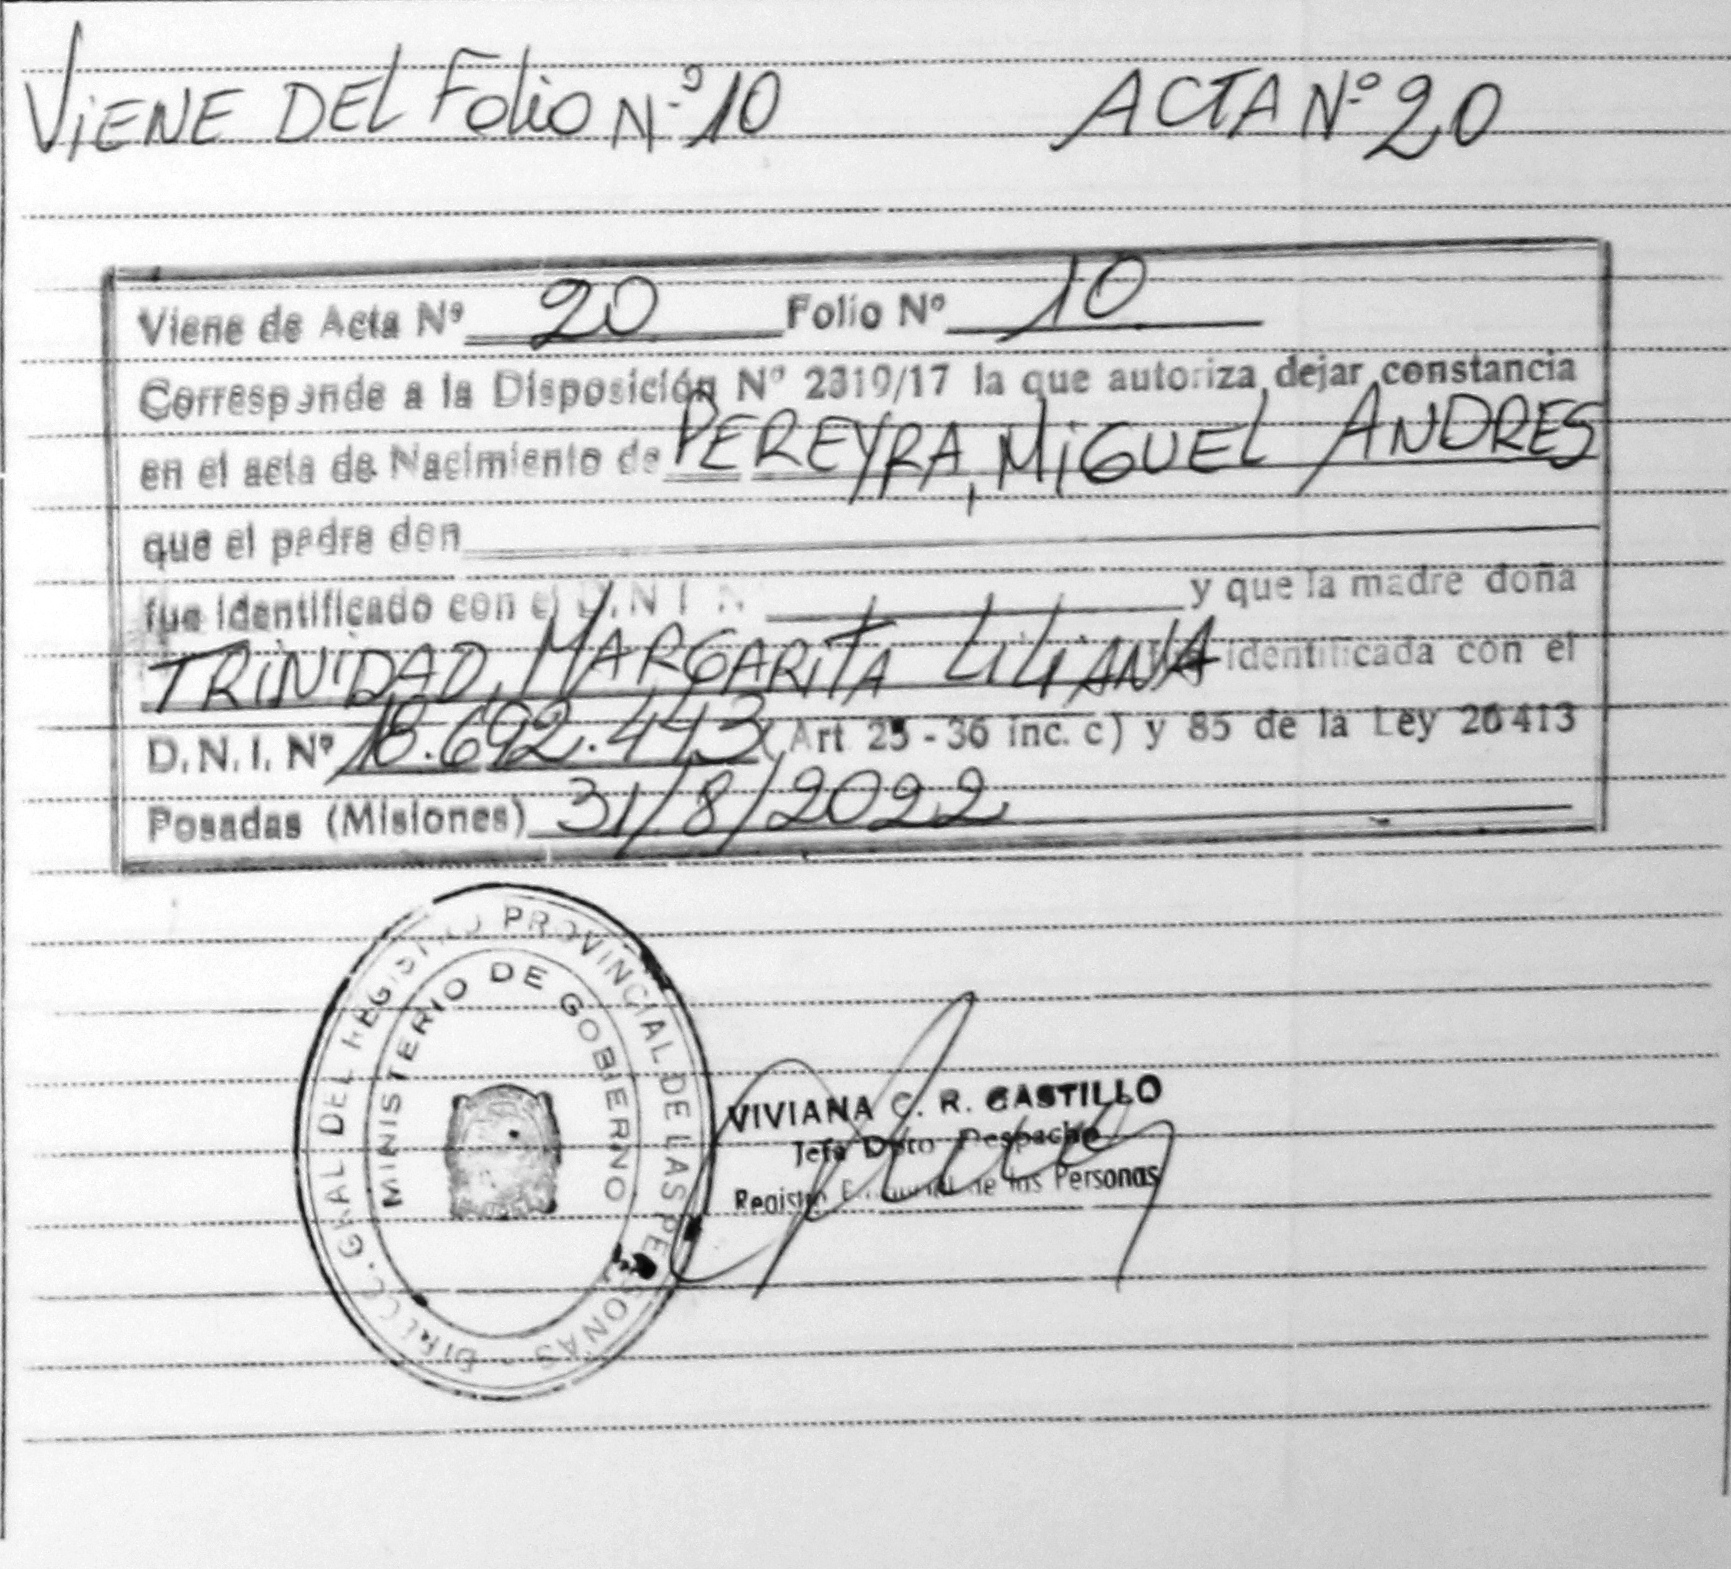 VIENE DEL Folio Nº 10 ACTA Nº 20
Viene de Acta Nº 20 Folio Nº 10
Corresponde a la Disposición Nº 2319/17 la que autoriza dejar constancia
en el acta de Nacimiento de PEREYRA, MIGUEL ANDRES
que el padre don
fue identificado con el D.N.I. Nº y que la madre doña
TRINIDAD, MARGARITA LILIANA identificada con el
D.N.I. Nº 18.692.443 (Art 25 - 36 inc. c) y 85 de la Ley 26413
Posadas (Misiones) 31/8/2022
DIRECC. GRAL DEL REGISTRO PROVINCIAL DE LAS PERSONAS -
MINISTERIO DE GOBIERNO
VIVIANA C. R. CASTILLO
Jefa Dpto Despacho
Registro de las Personas